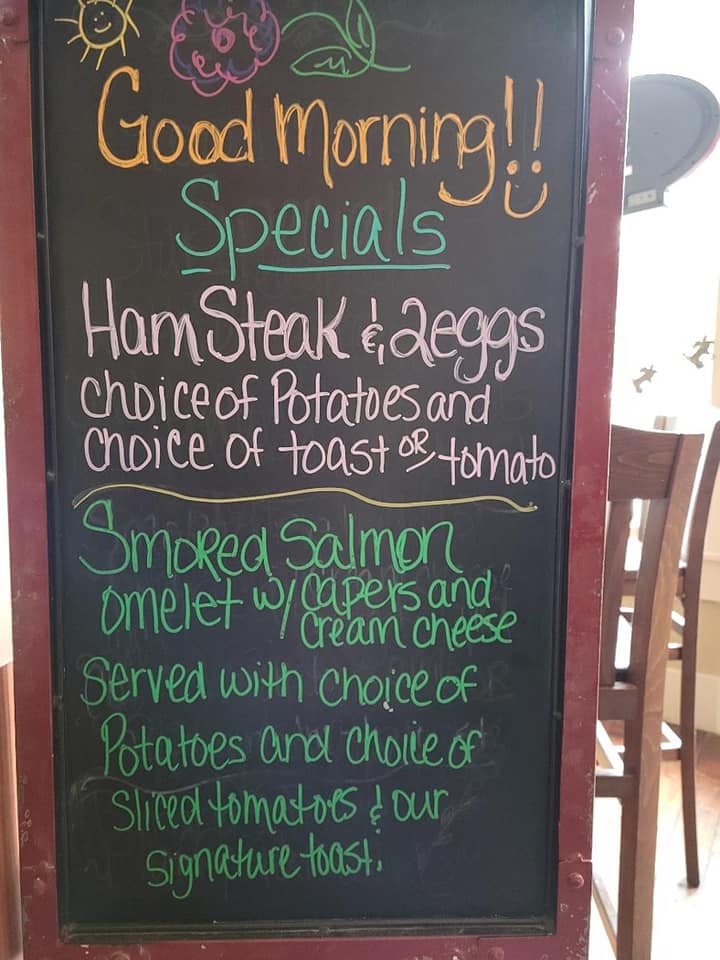 Good morning!!
Specials
Ham Steak & 2eggs
choice of Potatoes and
choice of toast OR tomato
Smoked Salmon
omelet w/ capers and
cream cheese
Served with choice of
Potatoes and choice of
Sliced tomatoes & our
signature toast.